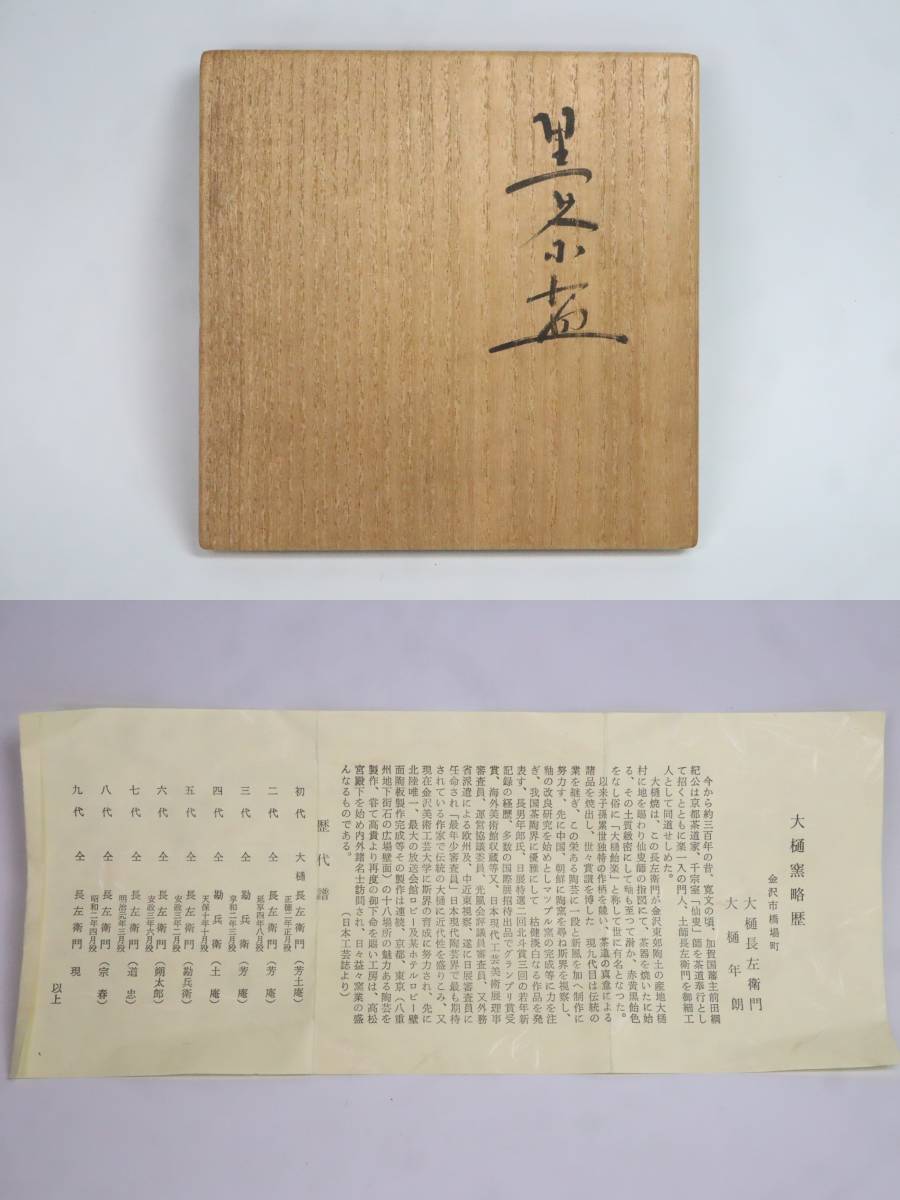 黒茶盌
大樋窯略歴
金沢市橋場町
大樋長左衛門
大樋年朗
今から約三百年の昔、寛文の頃、加賀国藩主前田綱
紀公は京都茶道家、千宗室「仙叟」師を茶道奉行とし
て招くとともに楽一入の門人、土師長左衛門を御細工
人として同道せしめた。
大樋焼は、この長左衛門が金沢東郊陶土の産地大樋
村に地を賜わり仙叟師の指図にて、茶器を焼いたに始
る、その土質緻密にして釉も至つて滑か、赤黄黒飴色
をなし俗に「大樋飴楽」と称して世に有名となつた。
以来子孫累世独特の作柄を競い、茶道の真意による
諸品を焼出し、世々賞讃を博した　現九代目は伝統の
業を継ぎ、この栄ある陶芸に一段と新風を加へ制作に
努力す、先に中国、朝鮮に陶窯を尋ね斯界を視察し、
釉の改良研究を始めとしマップル窯の完成等に力を注
ぎ、我国茶陶界に優雅にして　枯健淡白なる作品を発
表す、長男年郎氏、日展特選二回北斗賞三回の若年新
記録の経歴、多数の国際展招待出品でグランプリ賞受
賞、海外美術館収蔵等又、日本現代工芸美術展理事
審査員、運営協議委員、光風会評議員審査員、又外務
省派遣による欧州及、中近東視察、遂に日展審査員に
任命され「最年少審査員」日本現代陶芸界で最も期待
されている作家で伝統の大樋に近代性を盛りこみ、又
現在金沢美術工芸大学に斯界の育成に努力され、先に
北陸唯一、最大の放送会館ロビー及某ホテルロビー壁
面陶板製作完成等その製作は連続、京都、東京（八重
州地下街石の広場壁面）の十八場所の魅力ある陶芸を
製作、眘て高貴より再度の御下命を賜い工房は、高松
宮殿下を始め内外諸名士訪問され、日々益々窯業の盛
んなるものである。　（日本工芸誌より）
歴代譜
初代　大樋長左衛門（芳土庵）
正徳二年正月歿
二代　仝　長左衛門（芳庵）
延享四年八月歿
三代　仝　勘兵衛（芳庵）
享和二年三月歿
四代　仝　勘兵衛（土庵）
天保十年十月歿
五代　仝　長左衛門（勘兵衛）
安政三年二月歿
六代　仝　長左衛門（朔太郎）
安政三年六月歿
七代　仝　長左衛門（道忠）
明治元年三月歿
八代　仝　長左衛門（宗春）
昭和二年四月歿
九代　仝　長左衛門　現
以上